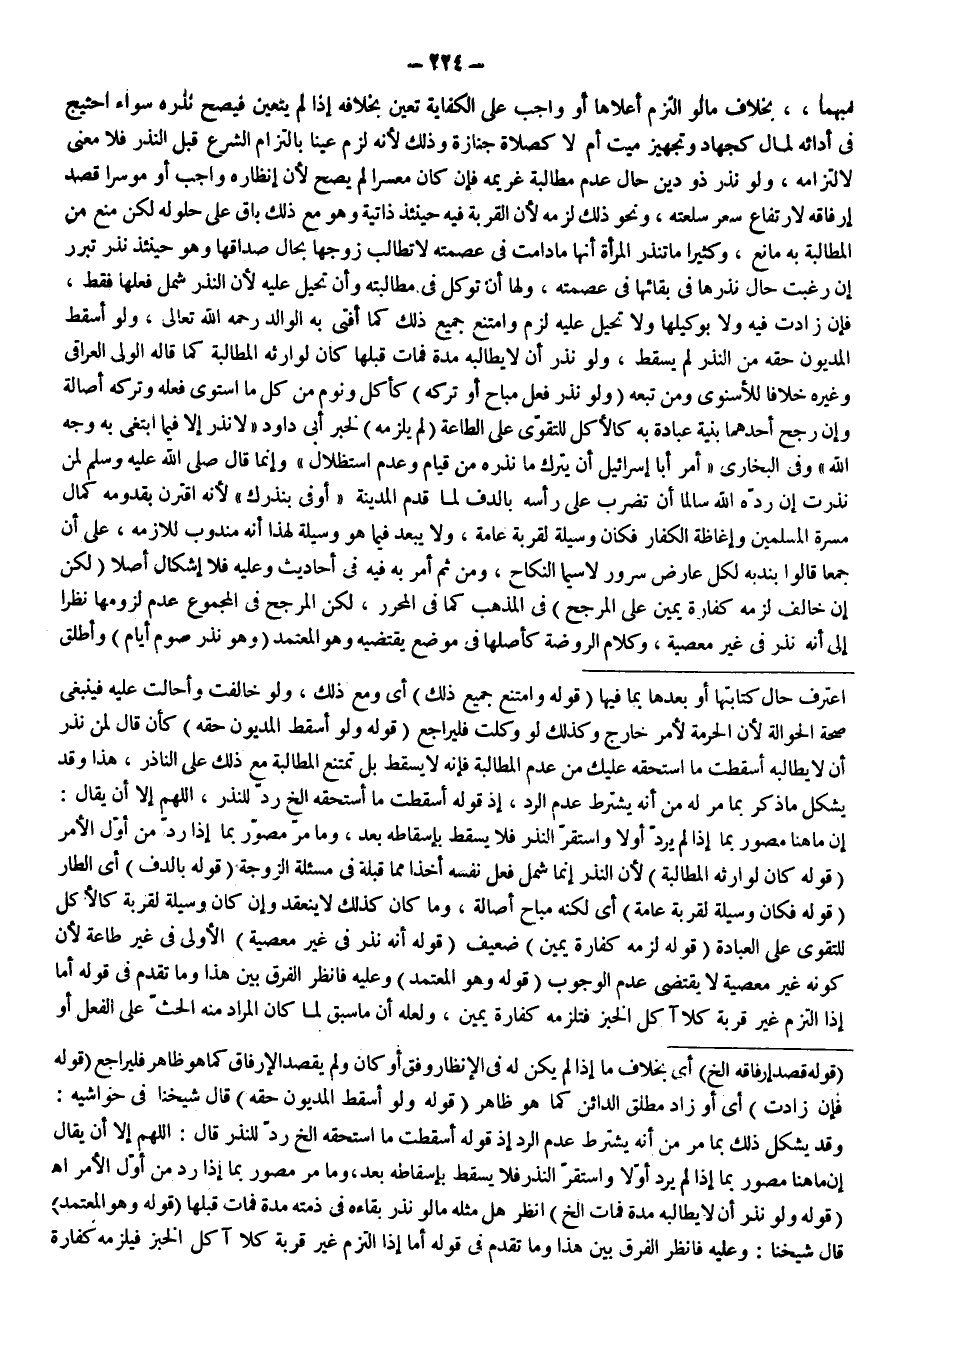 - ٢٢٤ -
مبهما ، ، بخلاف مالو التزم أعلاها أو واجب على الكفاية تعين بخلافه إذا لم يتعين فيصح نذره سواء احتيج
فى أدائه لمـال كجهاد وتجهيز ميت أم لا كصلاة جنازة وذلك لأنه لزم عينا بالتزام الشرع قبل النذر فلا معنى
لالتزامه ، ولو نذر ذو دين حال عدم مطالبة غريمه فإن كان معسرا لم يصح لأن إنظاره واجب أو موسرا قصد
إرفاقه لارتفاع سعر سلعته ، ونحو ذلك لزمه لأن القربة فيه حينئذ ذاتية وهو مع ذلك باق على حلوله لكن منع من
المطالبة به مانع ، وكثيرا ماتنذر المرأة أنها مادامت فى عصمته لاتطالب زوجها بحال صداقها وهو حينئذ نذر تبرر
إن رغبت حال نذرها فى بقائها فى عصمته ، ولها أن توكل فى مطالبته وأن تحيل عليه لأن النذر شمل فعلها فقط ،
فإن زادت فيه ولا بوكيلها ولا تحيل عليه لزم وامتنع جميع ذلك كما أفتى به الوالد رحمه الله تعالى ، ولو أسقط
المديون حقه من النذر لم يسقط ، ولو نذر أن لايطالبه مدة فمات قبلها كان لوارثه المطالبة كما قاله الولى العراقى
وغيره خلافا للأسنوى ومن تبعه ( ولو نذر فعل مباح أو تركه ) كأكل ونوم من كل ما استوى فعله وتركه أصالة
وإن رجح أحدهما بنية عبادة به كالأكل للتقوّى على الطاعة ( لم يلزمه ) لخبر أبى داود « لانذر إلا فيما ابتغى به وجه
الله » وفى البخارى « أمر أبا إسرائيل أن يترك ما نذره من قيام وعدم استظلال » وإنما قال صلى الله عليه وسلم لمن
نذرت إن ردّه الله سالما أن تضرب على رأسه بالدف لمـا قدم المدينة « أوفى بنذرك » لأنه اقترن بقدومه كمال
مسرة المسلمين وإغاظة الكفار فكان وسيلة لقربة عامة ، ولا يبعد فيما هو وسيلة لهذا أنه مندوب للازمه ، على أن
جمعا قالوا بندبه لكل عارض سرور لاسيما النكاح ، ومن ثم أمر به فيه فى أحاديث وعليه فلا إشكال أصلا ( لكن
إن خالف لزمه كفارة يمين على المرجح ) فى المذهب كما فى المحرر ، لكن المرجح فى المجموع عدم لزومها نظرا
إلى أنه نذر فى غير معصية ، وكلام الروضة كأصلها فى موضع يقتضيه وهو المعتمد ( وهو نذر صوم أيام ) وأطلق
اعترف حال كتابتها أو بعدها بما فيها ( قوله وامتنع جميع ذلك ) أى ومع ذلك ، ولو خالفت وأحالت عليه فينبغى
صحة الحوالة لأن الحرمة لأمر خارج وكذلك لو وكلت فليراجع ( قوله ولو أسقط المديون حقه ) كأن قال لمن نذر
أن لايطالبه أسقطت ما استحقه عليك من عدم المطالبة فإنه لايسقط بل تمتنع المطالبة مع ذلك على الناذر ، هذا وقد
يشكل ماذكر بما مر له من أنه يشترط عدم الرد ، إذ قوله أسقطت ما أستحقه الخ ردّ للنذر ، اللهم إلا أن يقال :
إن ماهنا مصور بما إذا لم يردّ أولا واستقرّ النذر فلا يسقط بإسقاطه بعد ، وما مرّ مصوّر بما إذا ردّ من أوّل الأمر
( قوله كان لوارثه المطالبة ) لأن النذر إنما شمل فعل نفسه أخذا مما قبله فى مسئلة الزوجة ( قوله بالدف ) أى الطار
( قوله فكان وسيلة لقربة عامة ) أى لكنه مباح أصالة ، وما كان كذلك لاينعقد وإن كان وسيلة لقربة كالأكل
للتقوى على العبادة ( قوله لزمه كفارة يمين ) ضعيف ( قوله أنه نذر فى غير معصية ) الأولى فى غير طاعة لأن
كونه غير معصية لا يقتضى عدم الوجوب ( قوله وهو المعتمد ) وعليه فانظر الفرق بين هذا وما تقدم فى قوله أما
إذا التزم غير قربة كلا آكل الخبز فتلزمه كفارة يمين ، ولعله أن ماسبق لمـا كان المراد منه الحثّ على الفعل أو
( قوله قصد إرفاقه الخ ) أى بخلاف ما إذا لم يكن له فى الإنظار وفق أو كان ولم يقصد الإرفاق كما هو ظاهر فليراجع ( قوله
فإن زادت ) أى أو زاد مطلق الدائن كما هو ظاهر ( قوله ولو أسقط المديون حقه ) قال شيخنا فى حواشيه :
وقد يشكل ذلك بما مر من أنه يشترط عدم الرد إذ قوله أسقطت ما استحقه الخ ردّ للنذر قال : اللهم إلا أن يقال
إن ماهنا مصور بما إذا لم يرد أوّلا واستقرّ النذر فلا يسقط بإسقاطه بعد ، وما مر مصور بما إذا رد من أوّل الأمر اه
( قوله ولو نذر أن لايطالبه مدة فمات الخ ) انظر هل مثله مالو نذر بقاءه فى ذمته مدة فمات قبلها ( قوله وهو المعتمد )
قال شيخنا : وعليه فانظر الفرق بين هذا وما تقدم فى قوله أما إذا التزم غير قربة كلا آكل الخبز فيلزمه كفارة